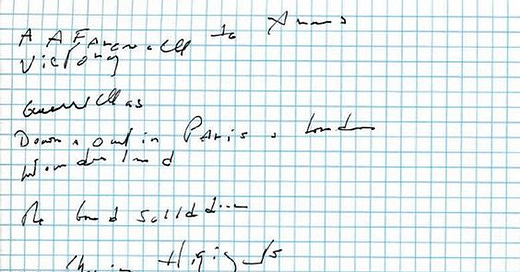 A Farewell to Arms
Victory
Guerrillas
Down & out in Paris & London
Wonderland
The Good Soldier